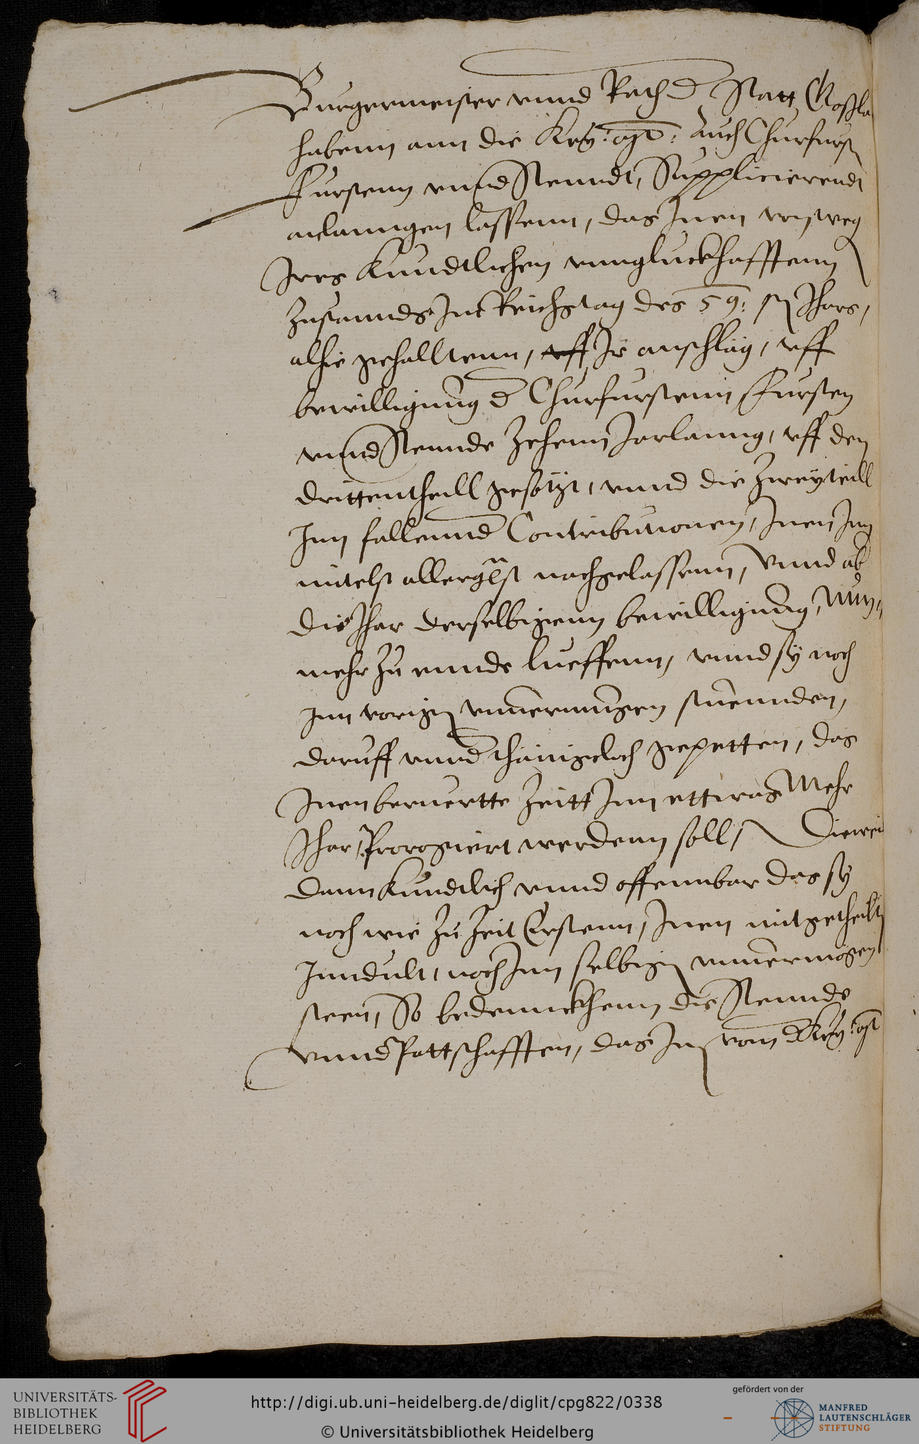 Burgermeister unnd Rath d Statt Goßla
habenn ann die Key: Mt: Auch Churfurst
Fursten unnd Stenndt, Supplicierendt
anlanngen lassenn, das Inen von weg
Ires kundtlichen unngluckhafftenn
Zustannds Im Reichstag des 59: Jhars,
alhie gehalltenn, uff Ir anschlag, uff
bewilligung d Churfurstenn Fursten
unnd Stennde Zehenn Jarlanng, uff den
drittentheill gesetzt, unnd die Zwey teill
Inn fallennd Contributionen, Inen Inn
mitelst allergst nachgelassenn, Unnd ob
die Jhar derselbigenn bewilligung, Nun,
mehr zu ennde lueffenn, unnd sy noch
Inn vorig unvermugen stuennden,
daruff unnd thänigclich gepetten, das
Inen beruertte Zeitt Inn ettwas Mehr
Jhar Prorogiert werdenn soll, Diewei
dann kundtlich unnd offennbar das sy
noch wie zu Zeit Erstenn, Inen mitgetheilt
Inndult, noch Inn selbign unvermögen
steen, So bedennckhenn die Stennde
unnd Pottschafften, das In von d Key: Mt
UNIVERSITÄTS-
BIBLIOTHEK
HEIDELBERG
http://digi.ub.uni-heidelberg.de/diglit/cpg822/0338
© Universitätsbibliothek Heidelberg
gefördert von der
MANFRED
LAUTENSCHLÄGER
STIFTUNG